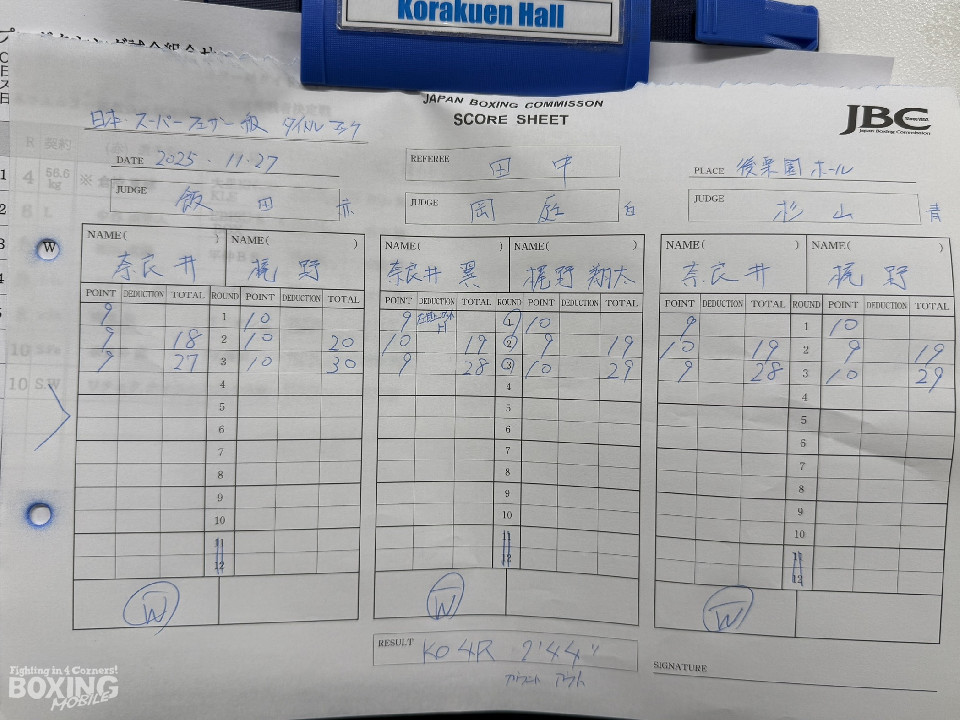 Korakuen Hall
JAPAN BOXING COMMISSON
SCORE SHEET
JBC
Japan Boxing Commission
日本スーパーフェザー級 タイトルマッチ
DATE 2025.11.27
REFEREE 田中
PLACE 後楽園ホール
JUDGE 飯田 赤
JUDGE 岡庭 白
JUDGE 杉山 青
NAME( ) NAME( ) NAME( ) NAME( ) NAME( ) NAME( )
奈良井 梶野 奈良井 翼 梶野 翔太 奈良井 梶野
POINT DEDUCTION TOTAL ROUND POINT DEDUCTION TOTAL POINT DEDUCTION TOTAL ROUND POINT DEDUCTION TOTAL POINT DEDUCTION TOTAL ROUND POINT DEDUCTION TOTAL
9 1 10 9 1 10 9 1 10
9 18 2 10 20 10 19 2 9 19 10 19 2 9 19
9 27 3 10 30 9 28 3 10 29 9 28 3 10 29
4 4 4
5 5 5
6 6 6
7 7 7
8 8 8
9 9 9
10 10 10
11 11 11
12 12 12
W W W
RESULT KO 4R 2'44"
カウント アウト
SIGNATURE
R 契約
4 58.6kg ※
6 L
10
10 S.W
W
Fighting in 4 Corners!
BOXING
MOBILE